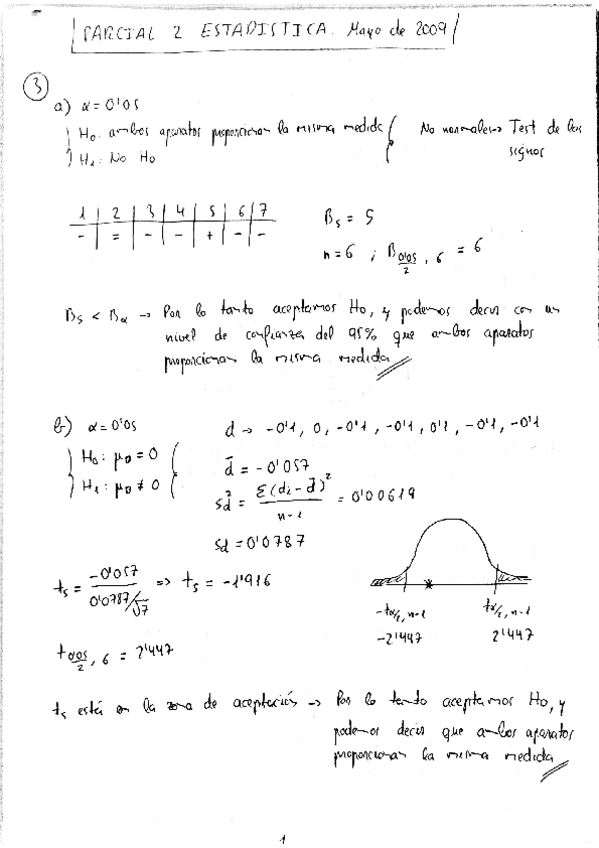 PARCIAL 2 ESTADISTICA. Mayo de 2009
3
a) α = 0'05
H0: ambos aparatos proporcionan la misma medida
No normales → Test de los signos
H1: No H0
1 2 3 4 5 6 7
- = - - + - -
Bs = 5
n = 6 ; B0'05/2, 6 = 6
Bs < Bα → Por lo tanto aceptamos H0, y podemos decir con un
nivel de confianza del 95% que ambos aparatos
proporcionan la misma medida
b) α = 0'05
d → -0'1, 0, -0'1, -0'1, 0'1, -0'1, -0'1
H0: μD = 0
H1: μD ≠ 0
d̄ = -0'057
sd² = Σ(di - d̄)² / n-1 = 0'00619
sd = 0'0787
ts = -0'057 / 0'0787/√7 => ts = -1'916
-tα/2, n-1 tα/2, n-1
-2'447 2'447
t0'05/2, 6 = 2'447
ts está en la zona de aceptación → Por lo tanto aceptamos H0, y
podemos decir que ambos aparatos
proporcionan la misma medida
1